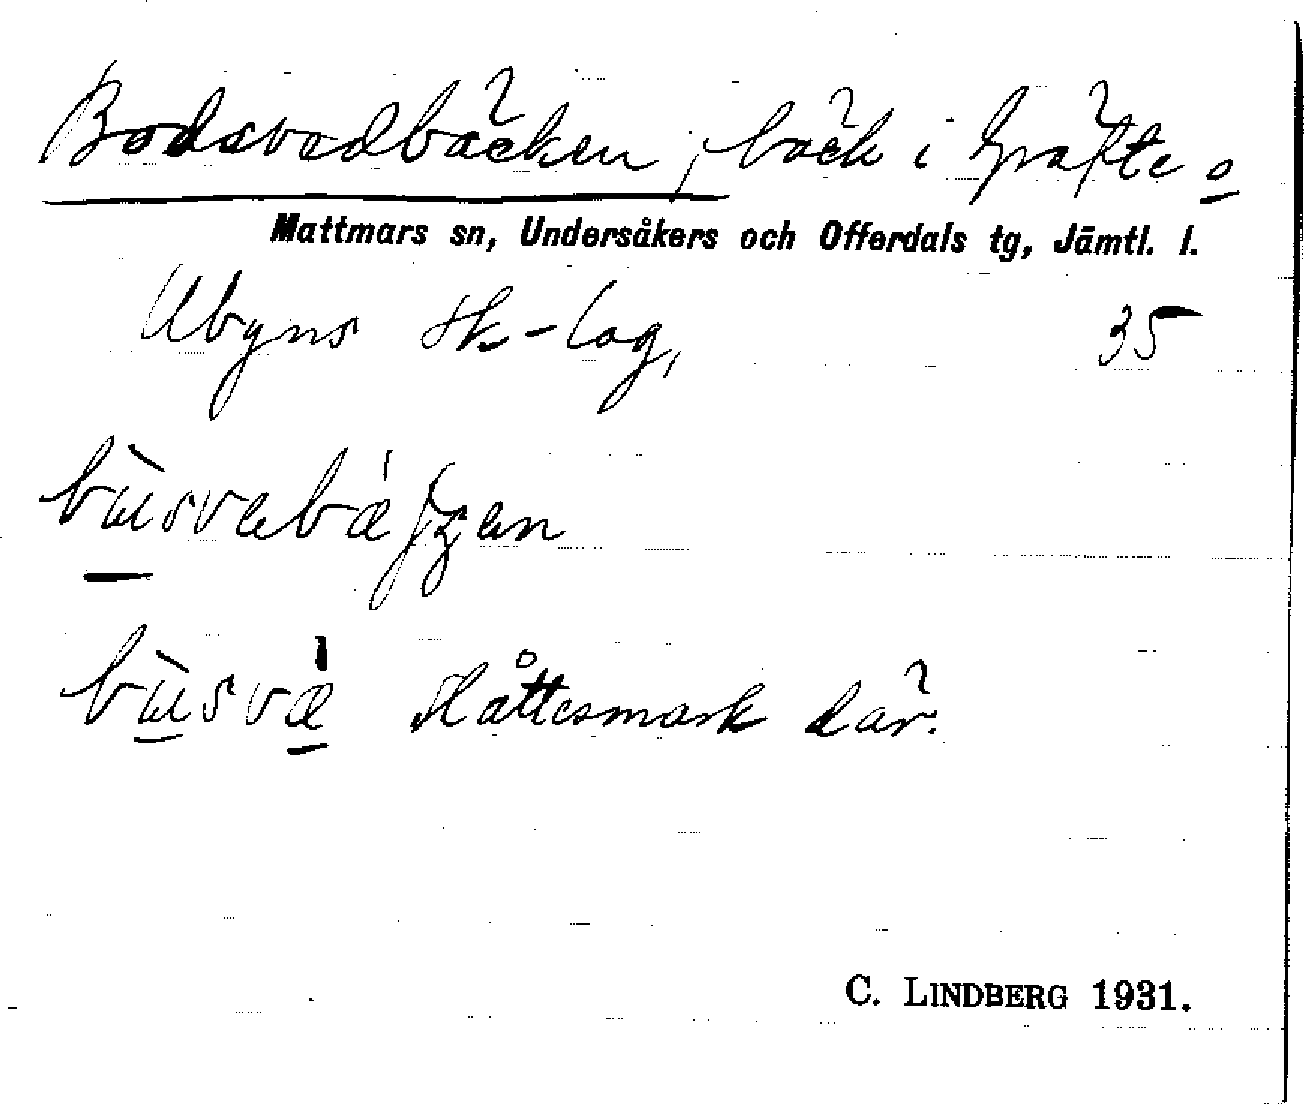 Bodsvedbäcken, bäck i Gräfte o
Mattmars sn, Undersåkers och Offerdals tg, Jämtl. l.
Ubyns sk-lag, 35
bùsvebæ̀ʃʒen
bùsvæ̀ slåttesmark där.
C. LINDBERG 1931.